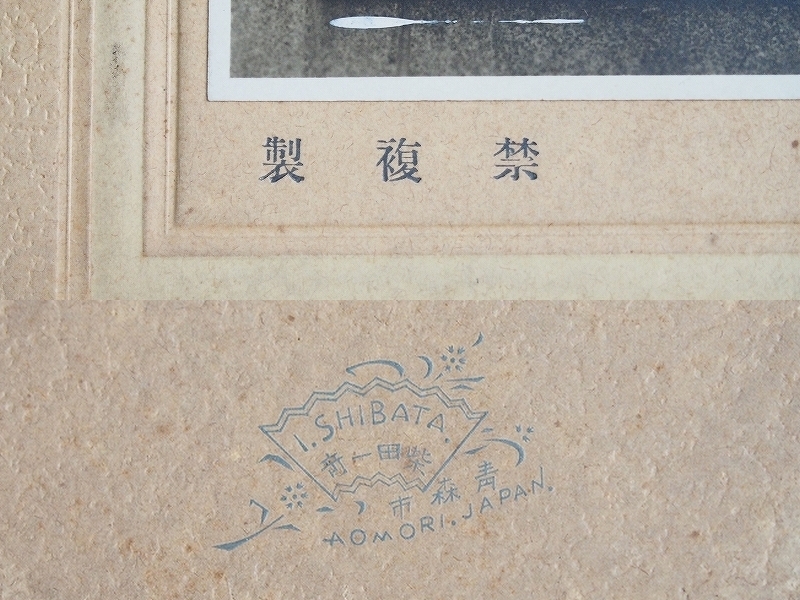 禁複製
I. SHIBATA.
柴田一
青森市
AOMORI. JAPAN.